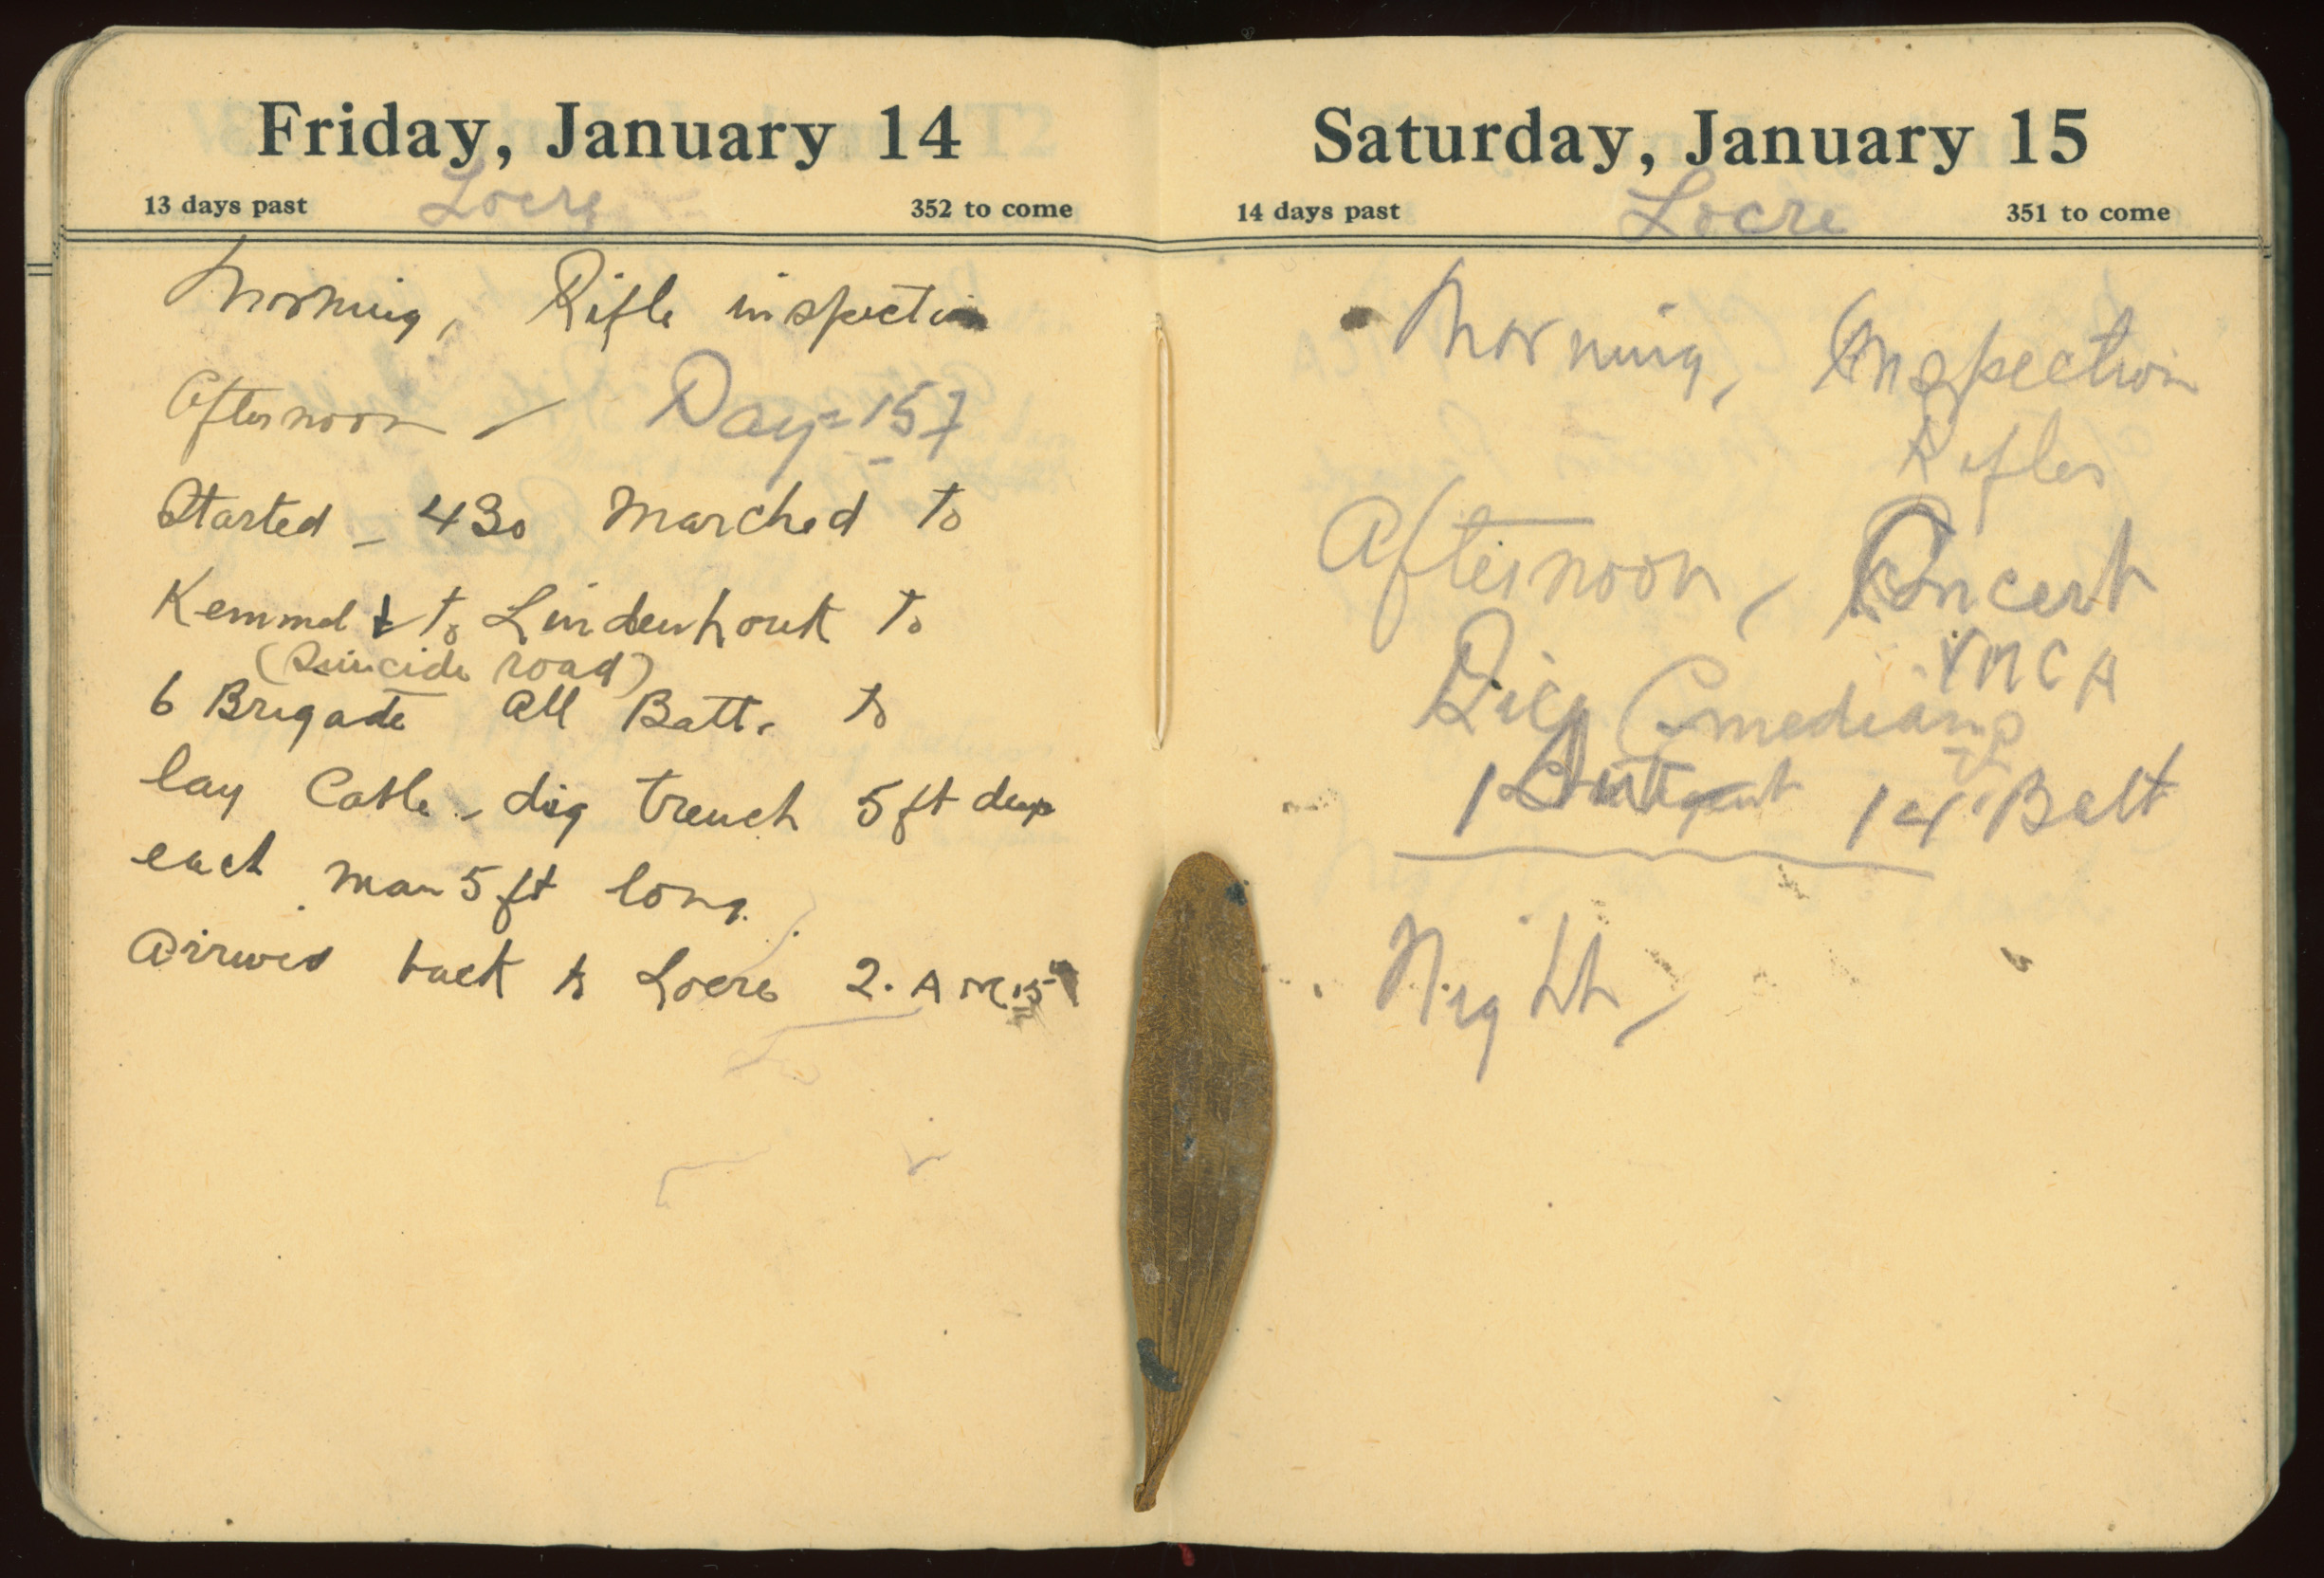 Friday, January 14
13 days past Locre 352 to come
Morning, Rifle inspection
Afternoon - Day = 157
Started - 430 Marched to
Kemmel & to Lindenhouk to
(Suicide road)
6 Brigade All Batt. to
lay Cable - dig trench 5 ft deep
each man 5 ft long.
Arrived back to Locre 2. AM 15th
Saturday, January 15
14 days past Locre 351 to come
Morning, Inspection
Rifles
Afternoon, Concert
YMCA
Comedian
1 14 Batt
Night,